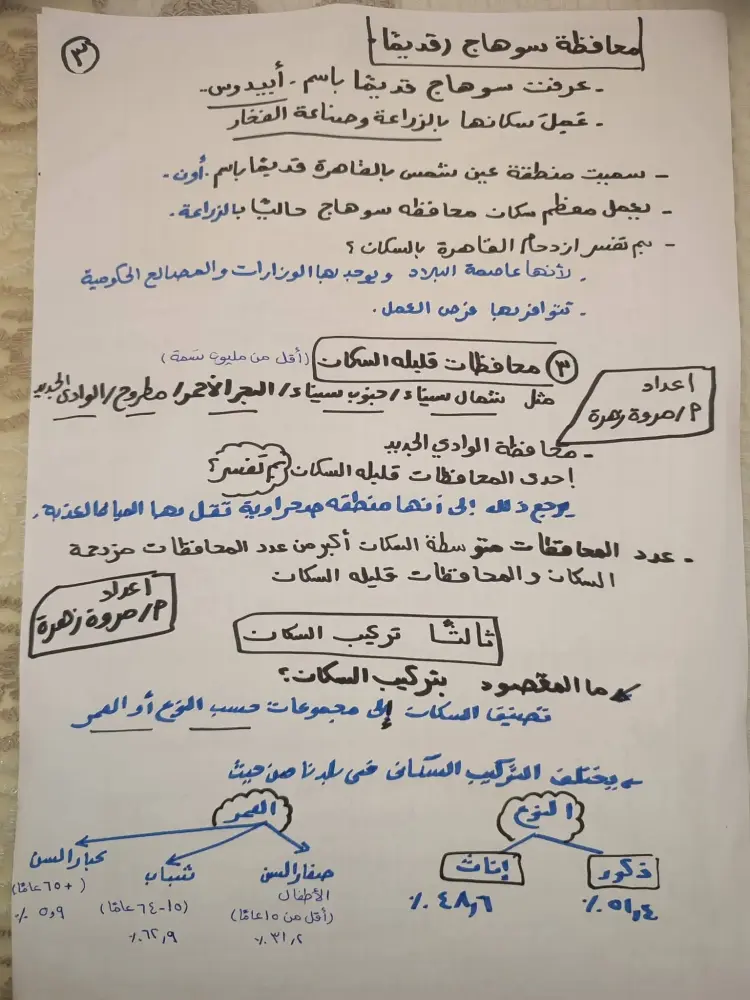 ٣
محافظة سوهاج (قديمًا)
- عرفت سوهاج قديمًا باسم. أبيدوس.
- عَمِلَ سكانها بالزراعة وصناعة الفخار
- سميت منطقة عين شمس بالقاهرة قديمًا باسم. أون.
- يعمل معظم سكان محافظه سوهاج حاليًا بالزراعة.
- بم تفسر ازدحام القاهرة بالسكان؟
. لأنها عاصمة البلاد ويوجد بها الوزارات والمصالح الحكومية
. تتوافر بها فرص العمل.
٣ محافظات قليله السكان (أقل من مليون نسمة)
مثل شمال سيناء / جنوب سيناء / البحر الأحمر / مطروح / الوادى الجديد
اعداد
م/مروة زهرة
- محافظة الوادي الجديد
إحدى المحافظات قليله السكان بم تفسر؟
يرجع ذلك إلى أنها منطقه صحراوية تقل بها المياه العذبة.
- عدد المحافظات متوسطة السكان أكبر من عدد المحافظات مزدحمة
السكان والمحافظات قليله السكان
اعداد
م/مروة زهرة
ثالثًا تركيب السكان
ما المقصود بتركيب السكان؟
تصنيف السكان إلى مجموعات حسب النوع أو العمر
- يختلف التركيب السكانى فى بلدنا من حيث
النوع
ذكور
٥١٫٤ ٪
إناث
٤٨٫٦ ٪
العمر
صغار السن
الأطفال
(أقل من ١٥ عامًا)
٣١٫٢ ٪
شباب
(١٥-٦٤ عامًا)
٦٢٫٩ ٪
كبار السن
(+٦٥ عامًا)
٥٫٩ ٪